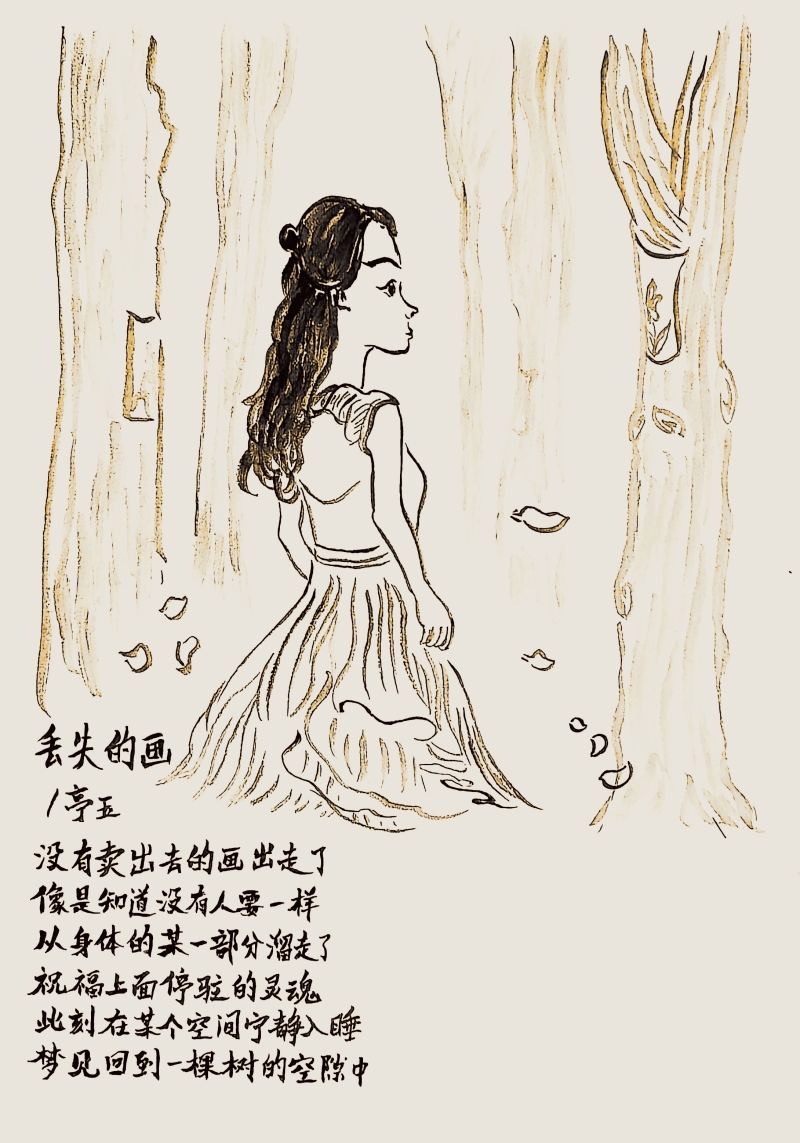 丢失的画
/亭五
没有卖出去的画出走了
像是知道没有人要一样
从身体的某一部分溜走了
祝福上面停驻的灵魂
此刻在某个空间宁静入睡
梦见回到一棵树的空隙中